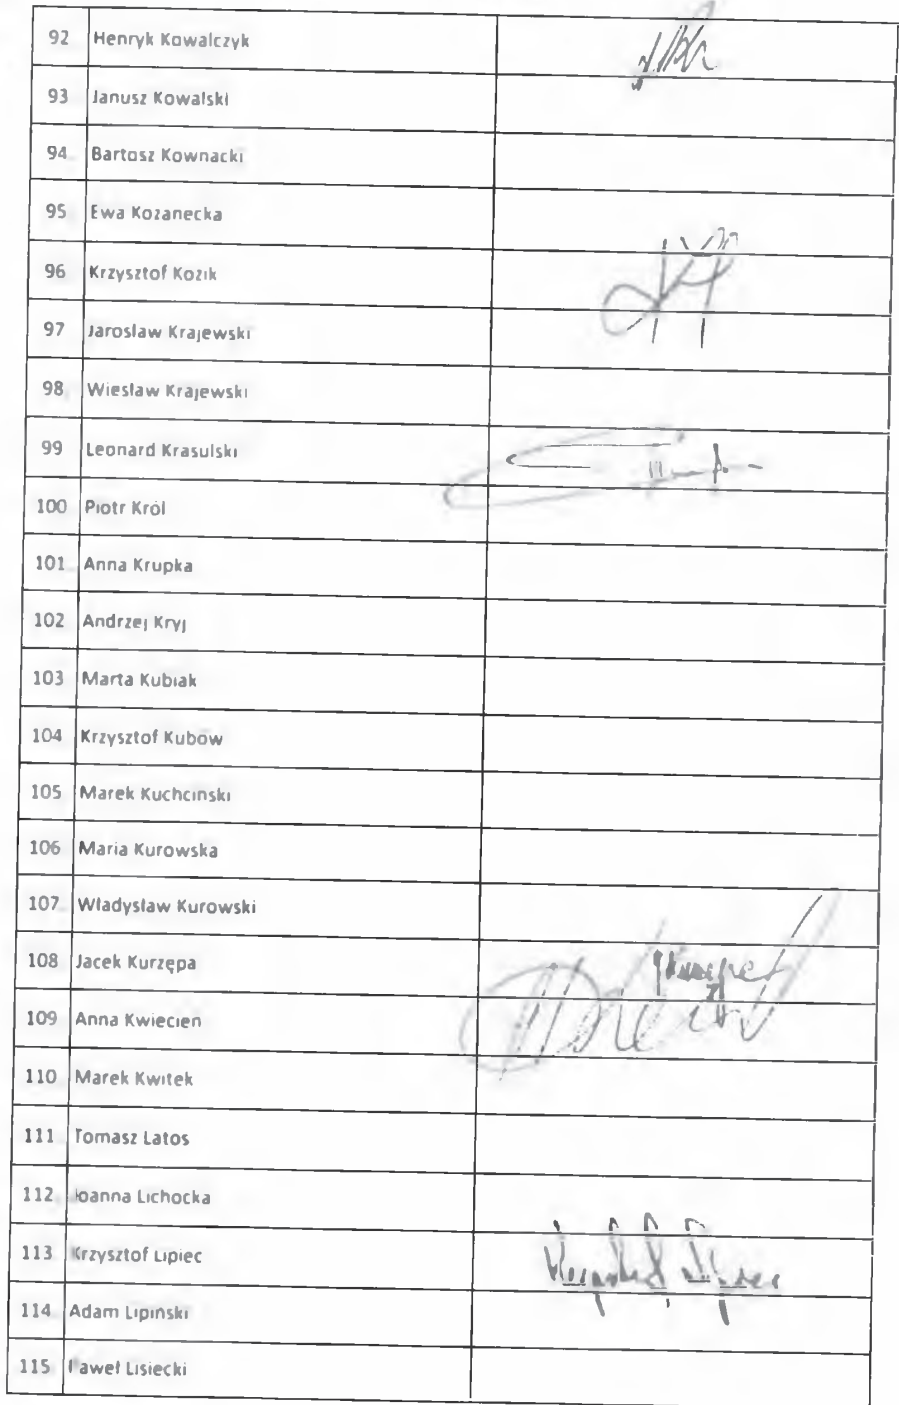 92 Henryk Kowalczyk
93 Janusz Kowalski
94 Bartosz Kownacki
95 Ewa Kozanecka
96 Krzysztof Kozik
97 Jarosław Krajewski
98 Wiesław Krajewski
99 Leonard Krasulski
100 Piotr Król
101 Anna Krupka
102 Andrzej Kryj
103 Marta Kubiak
104 Krzysztof Kubów
105 Marek Kuchciński
106 Maria Kurowska
107 Władysław Kurowski
108 Jacek Kurzępa
109 Anna Kwiecień
110 Marek Kwitek
111 Tomasz Latos
112 Joanna Lichocka
113 Krzysztof Lipiec
Krzysztof Lipiec
114 Adam Lipiński
115 Paweł Lisiecki